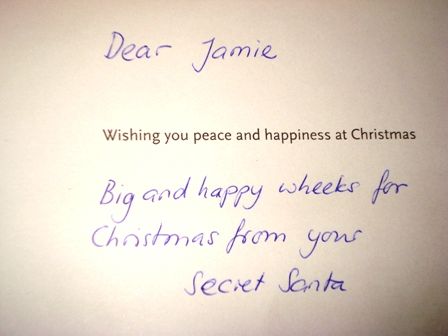 Dear Jamie
Wishing you peace and happiness at Christmas
Big and happy wheeks for
Christmas from your
Secret Santa